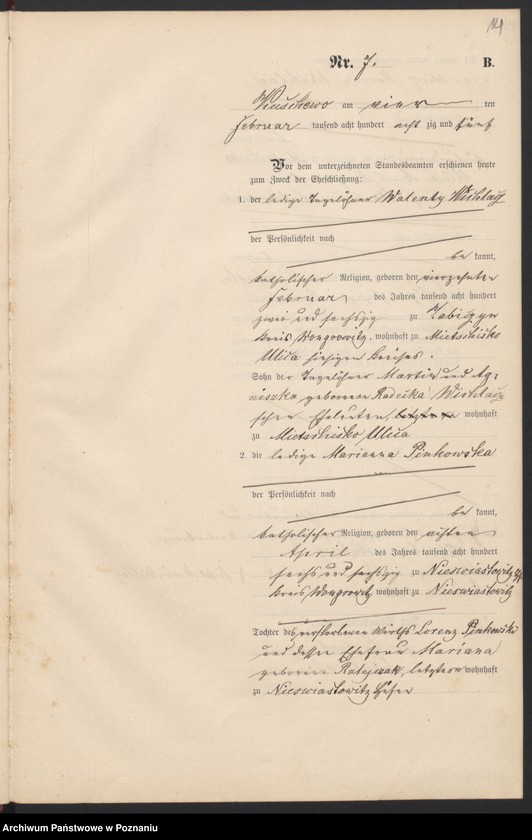 141
Nr. 7. B.
am vier ten
Februar tausend acht hundert acht zig und fünf
Vor dem unterzeichneten Standesbeamten erschienen heute
zum Zweck der Eheschließung:
1. der ledige Tagelöhner Walenty
der Persönlichkeit nach
be kannt,
katholischer Religion, geboren den vierzehnten
Februar des Jahres tausend acht hundert
zwei und sechszig zu Zabiczyn
Kreis Wongrowitz, wohnhaft zu Mietschisko
Ulica hiesigen Kreises.
Sohn der Tagelöhner Martin und Ag-
niszka geborene
schen Eheleuten, wohnhaft
zu Mietschisko Ulica
2. die ledige Marianna Pinkowska
der Persönlichkeit nach
be kannt,
katholischer Religion, geboren den
April des Jahres tausend acht hundert
sechs und sechszig zu Nieswiastowitz
Kreis Wongrowitz, wohnhaft zu Nieswiastowitz
Tochter des verstorbenen Wirths Lorenz Pinkowski
und dessen Ehefrau Mariana
geborene Ratajczak, letztere wohnhaft
zu Nieswiastowitz
Archiwum Państwowe w Poznaniu